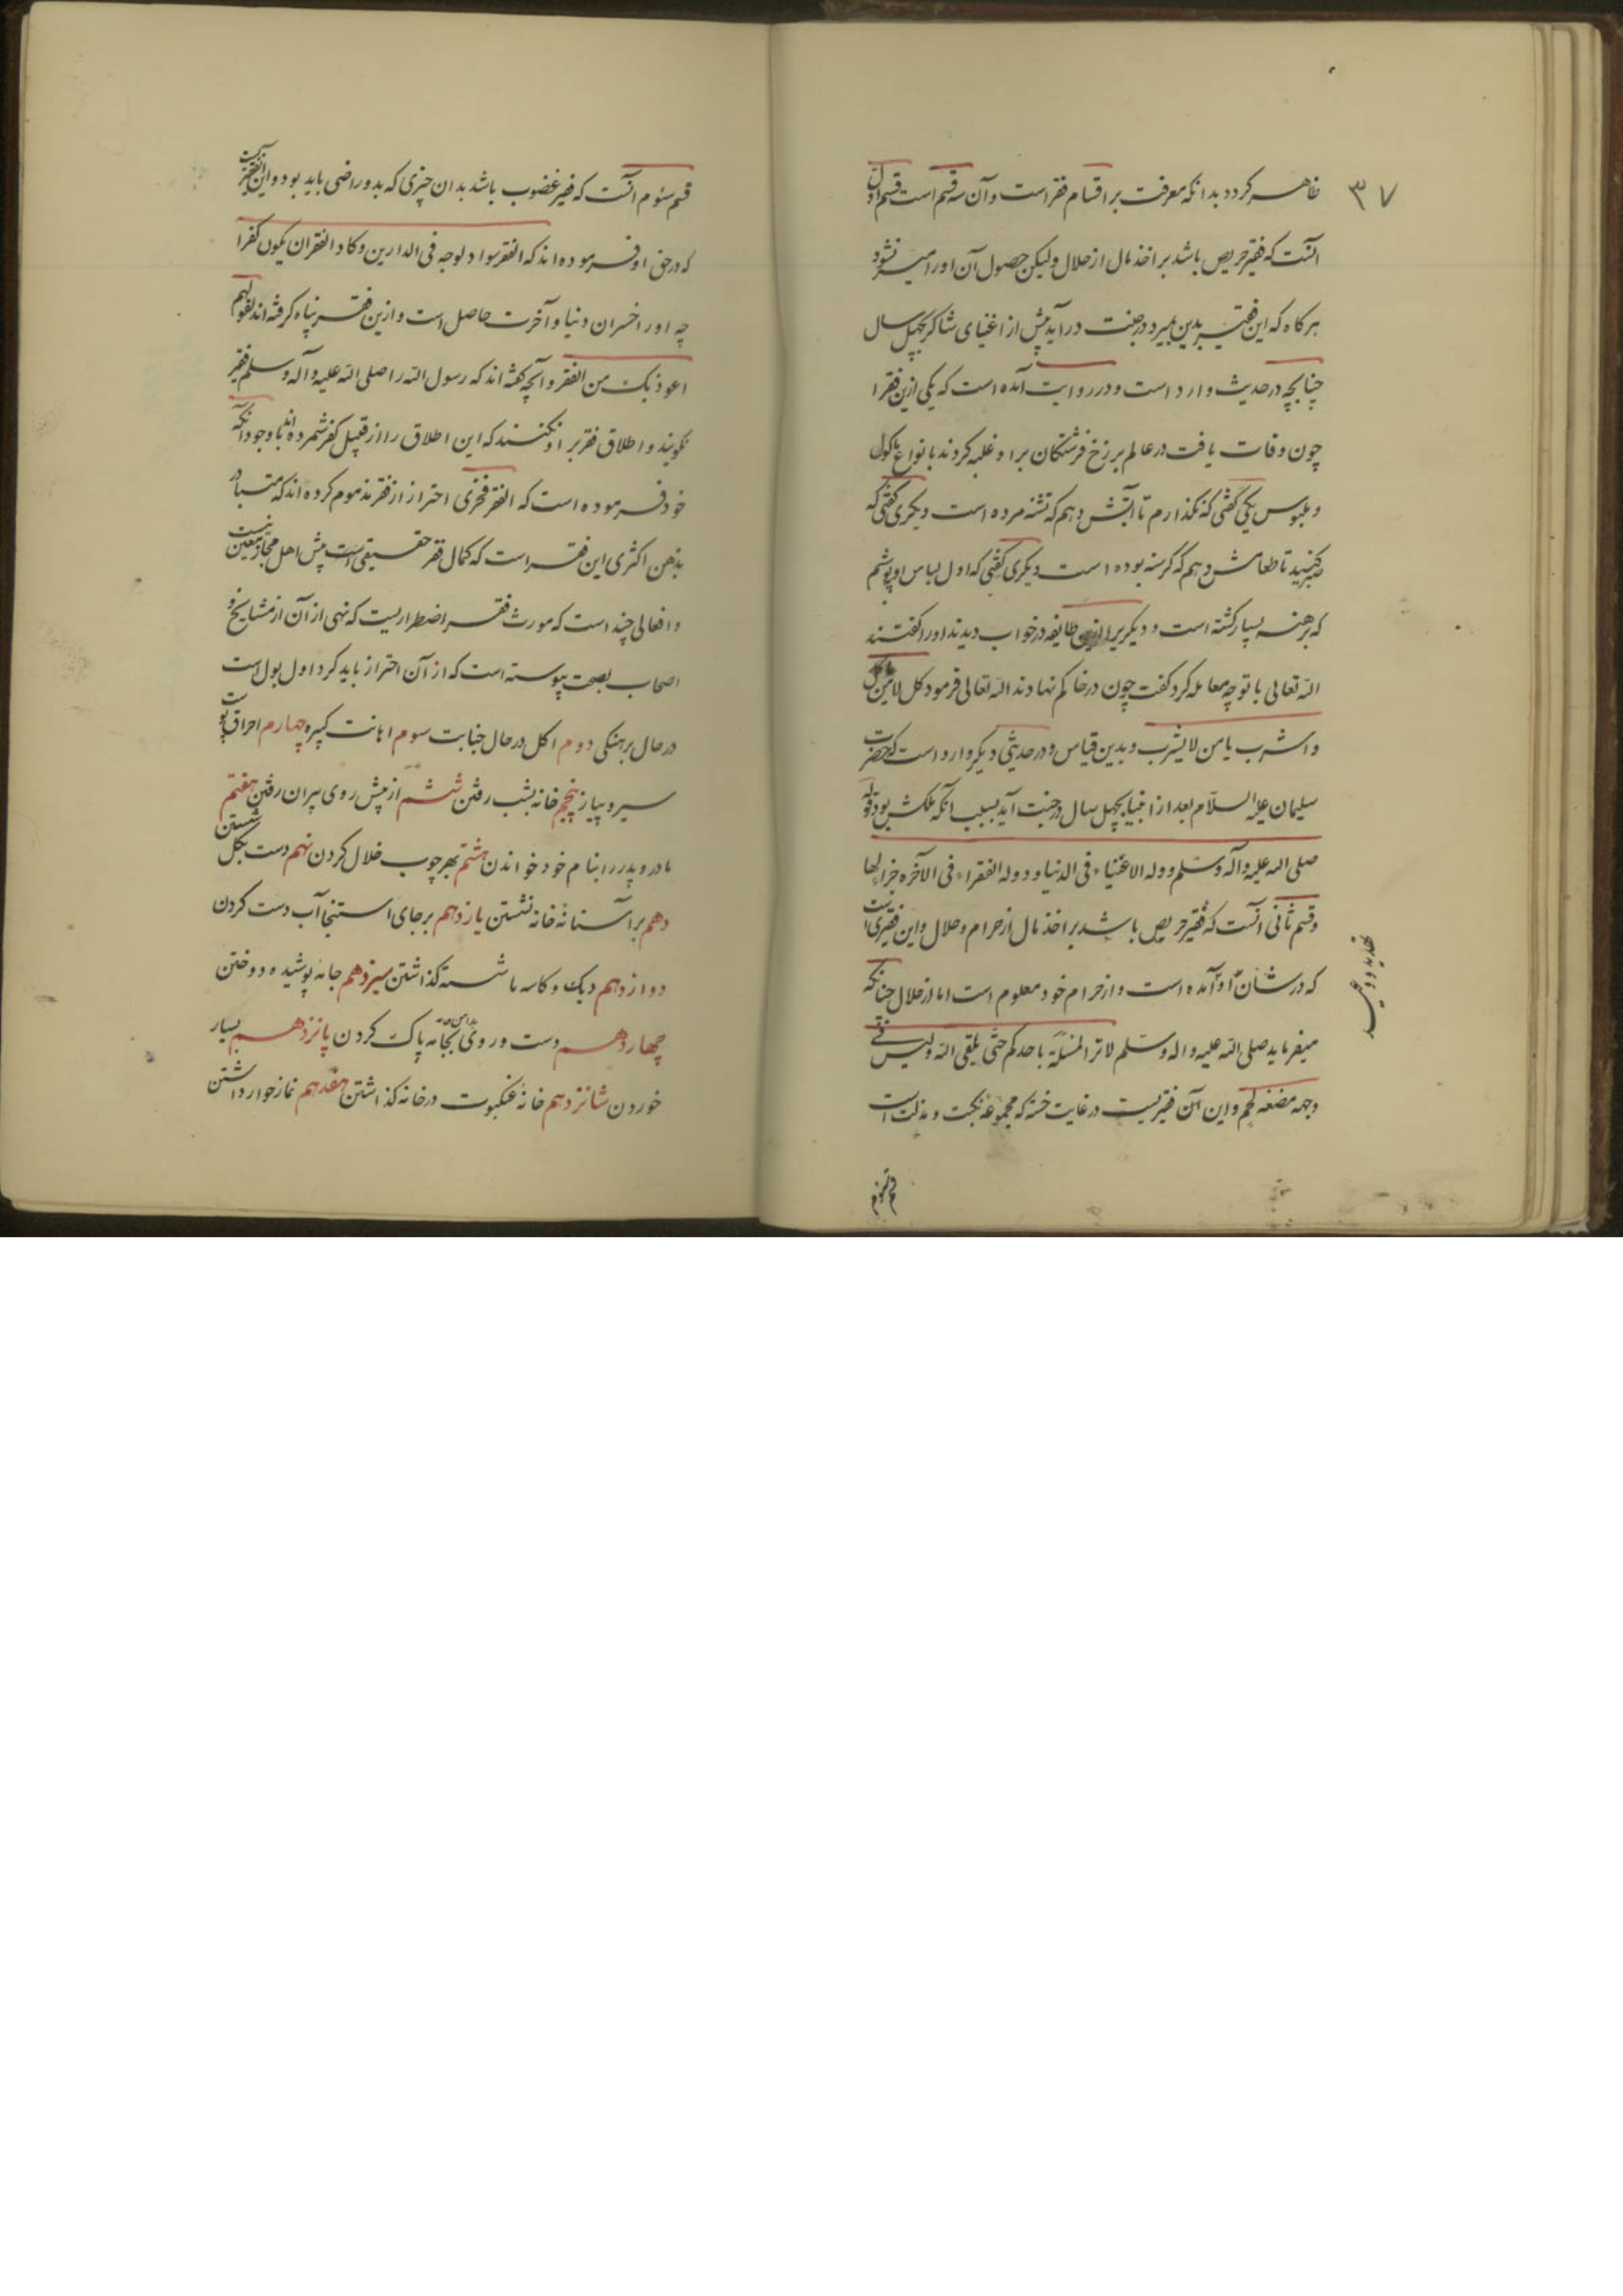 ۳۷
ظاهر کردد بدانکه معرفت بر اقسام فقر است و آن سه قسم است قسم اول
آنست که فقیر حریص باشد بر اخذ مال از حلال ولیکن حصول آن اورا میسر نشود
هرکاه که این فقیر بدین بمیرد در جنت درآید پیش از اغنیای شاکر بچهل سال
چنانچه در حدیث وارد است و در روایت آمده است که یکی ازین فقرا
چون وفات یافت در عالم برزخ فرشتکان برا و غلبه کردند بانواع ماکول
و ملبوس یکی کفتی که نکذارم تا آبش دهم که تشنه مرده است دیکری کفتی که
صبر کنید تا طعامش دهم که کرسنه بوده است دیکری کفتی که اول لباس او پوشم
که برهنه بسیار کشته است و دیکریرا ازین طایفه در خواب دیدند اورا کفتند
الله تعالی با تو چه معامله کرد کفت چون در خاکم نهادند الله تعالی فرمود کل یا من لا یاکل
و اشرب یا من لا یشرب و بدین قیاس و در حدیثی دیکر وارد است که حضرت
سلیمان علیه السلام بعد از انبیا بچهل سال در جنت آید بسبب آنکه ملکش بود قوله
صلی الله علیه وآله وسلم دوله الاغنیاء فی الدنیا و دوله الفقراء فی الآخره
و قسم ثانی آنست که فقیر حریص باشد بر اخذ مال از حرام و حلال و این فقیری است
که در شان او آمده است و از حرام خود معلوم است اما از حلال چنانکه
میفرماید صلی الله علیه واله وسلم لا تزال المسئلة باحدکم حتی یلقی الله ولیس فی
وجهه مضغه لحم و این آن فقیریست در غایت خسته که مجموعه نکبت و مذلت است
قسم سوم
قسم سوم آنست که فقیر غضوب باشد بدان چیزی که بدو راضی باید بود و این آن فقیریست
که در حق او فرموده اند که الفقر سواد لوجه فی الدارین و کاد الفقر ان یکون کفرا
چه اورا خسران دنیا و آخرت حاصل است و ازین فقر پناه کرفته اند بقولهم
اعوذ بک من الفقر و آنچه کفته اند که رسول الله را صلی الله علیه وآله وسلم فقیر
نکویند و اطلاق فقر بر او نکنند که این اطلاق را از قبیل کفر شمرده اند با وجود آنکه
خود فرموده است که الفقر فخری احتراز از فقر مذموم کرده اند که متبادر
بذهن اکثری این فقر است که کمال فقر حقیقی است پیش اهل مجاز معین نیست
و افعالی چند است که مورث فقر اضطراریست که نهی از آن از مشایخ و
اصحاب بصحت پیوسته است که از آن احتراز باید کرد اول بول است
در حال برهنکی دوم اکل در حال جنابت سوم اهانت کسره چهارم احراق پوست
سیر و پیاز پنجم خانه بشب رفتن ششم از پیش روی پیران رفتن هفتم
مادر و پدر را بنام خود خواندن هشتم بهر چوب خلال کردن نهم دست بکل شستن
دهم بر آستانهٔ خانه نشستن یازدهم بر جای استنجا آب دست کردن
دوازدهم دیک و کاسه ناشسته کذاشتن سیزدهم جامهٔ پوشیده دوختن
چهاردهم دست و روی بجامه پاک کردن پانزدهم بسیار
خوردن شانزدهم خانهٔ عنکبوت در خانه کذاشتن هفدهم نماز خوار داشتن